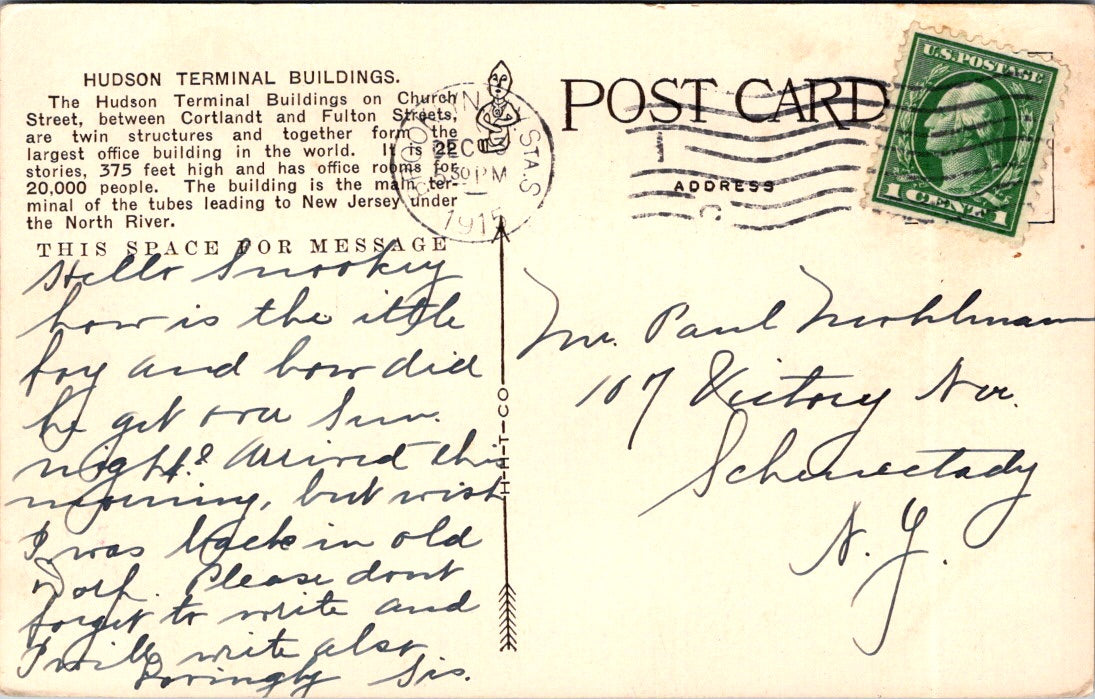 HUDSON TERMINAL BUILDINGS.
The Hudson Terminal Buildings on Church
Street, between Cortlandt and Fulton Streets,
are twin structures and together form the
largest office building in the world. It is 22
stories, 375 feet high and has office rooms for
20,000 people. The building is the main ter-
minal of the tubes leading to New Jersey under
the North River.
THIS SPACE FOR MESSAGE
Hello Snookey
how is the ittle
boy and how did
he get over Sun.
night? Arrived this
morning, but wish
I was back in old
Dorf. Please dont
forget to write and
I will write also
Lovingly Sis.
H-H-T-CO
N.Y. STA.S
DEC
30 PM
1915
POST CARD
ADDRESS
U.S. POSTAGE
1 CENT 1
Mr. Paul
107 Victory Ave.
Schenectady
N.Y.